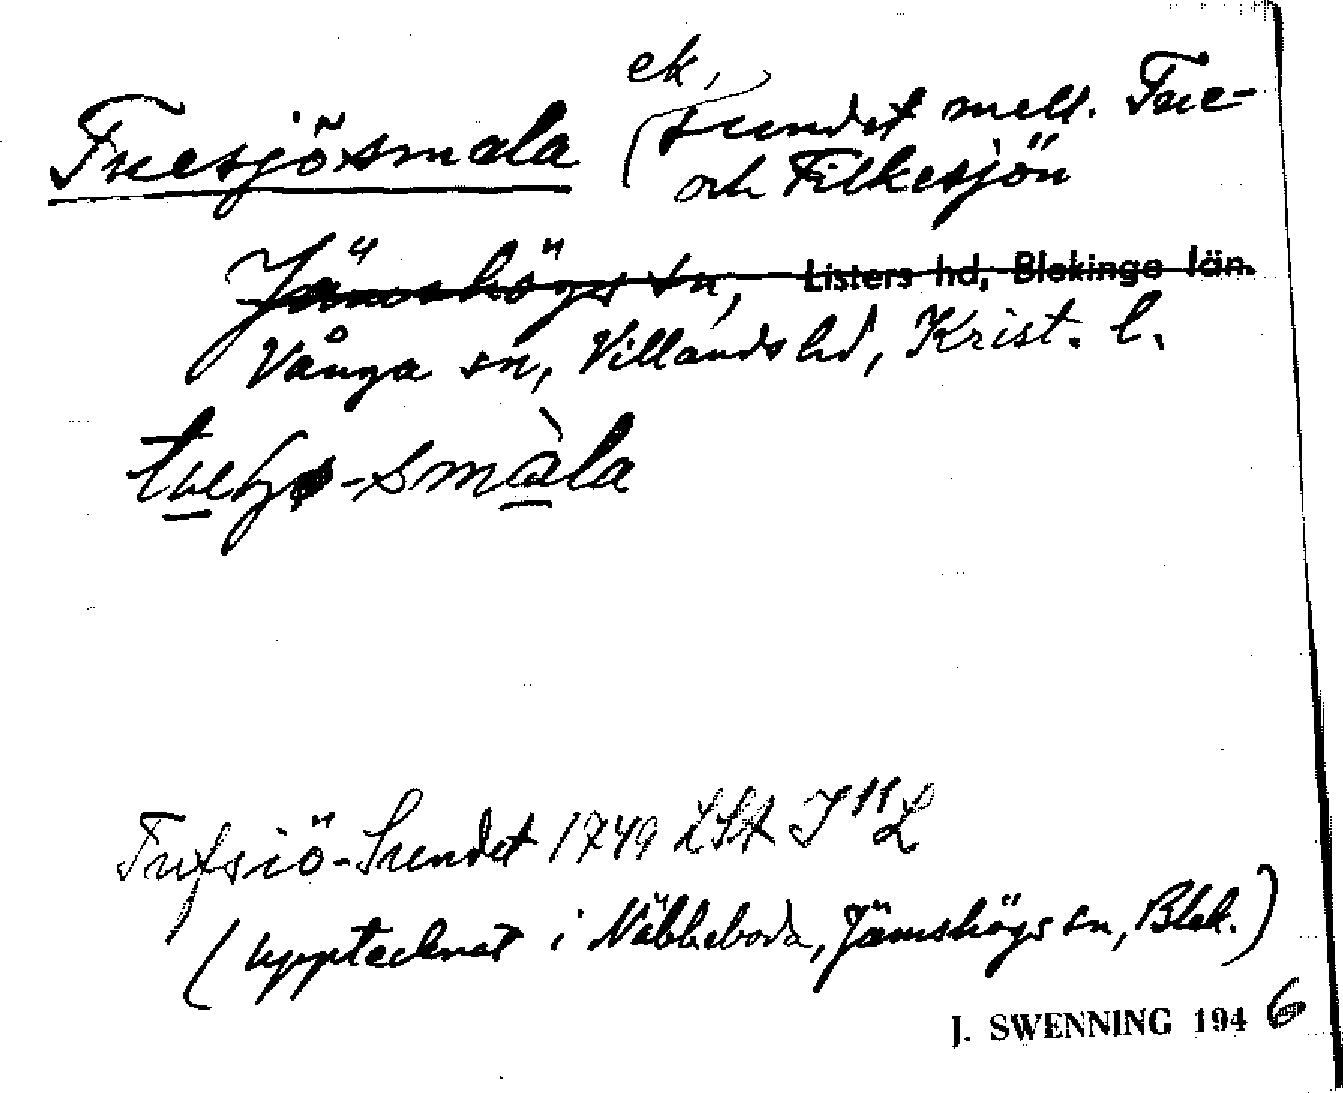 Truesjösmala
ek,
(sundet mell. True-
och Filkesjön
Jämshögs sn, Listers hd, Blekinge län.
Vånga sn, Villands hd, Krist. l.
-småla
Trufsiö-Sundet 1749 LSA J11L
(upptecknat i Näbbeboda, Jämshögs sn, Blek.)
J. SWENNING 1946